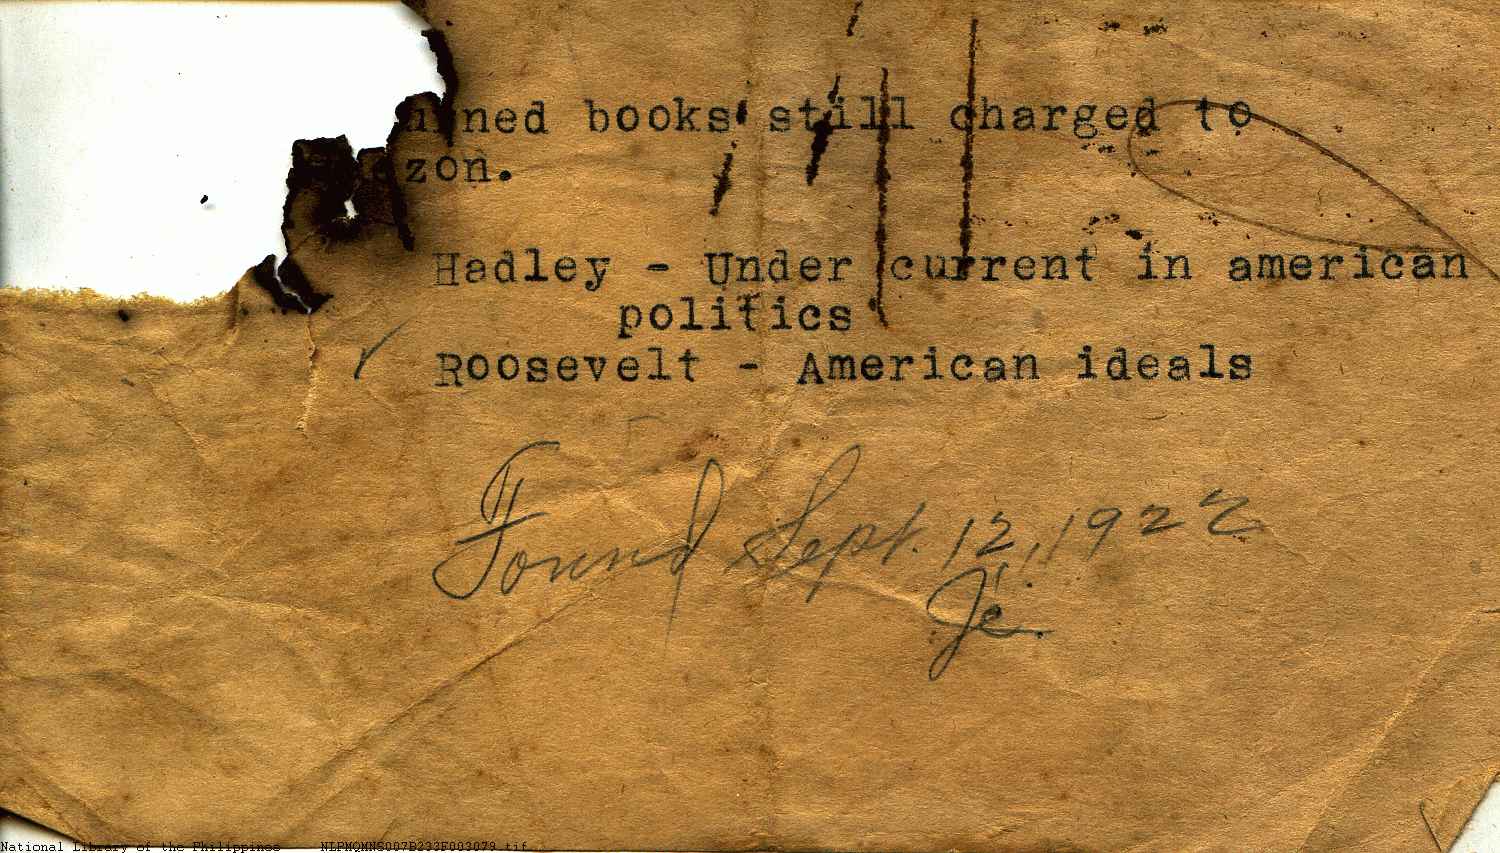 urned books still charged to
zon.
Hadley - Under current in american
politics
Roosevelt - American ideals
Found Sept. 12, 1922
National Library of the Philippines NLPMQMNS007B233F003079.tif